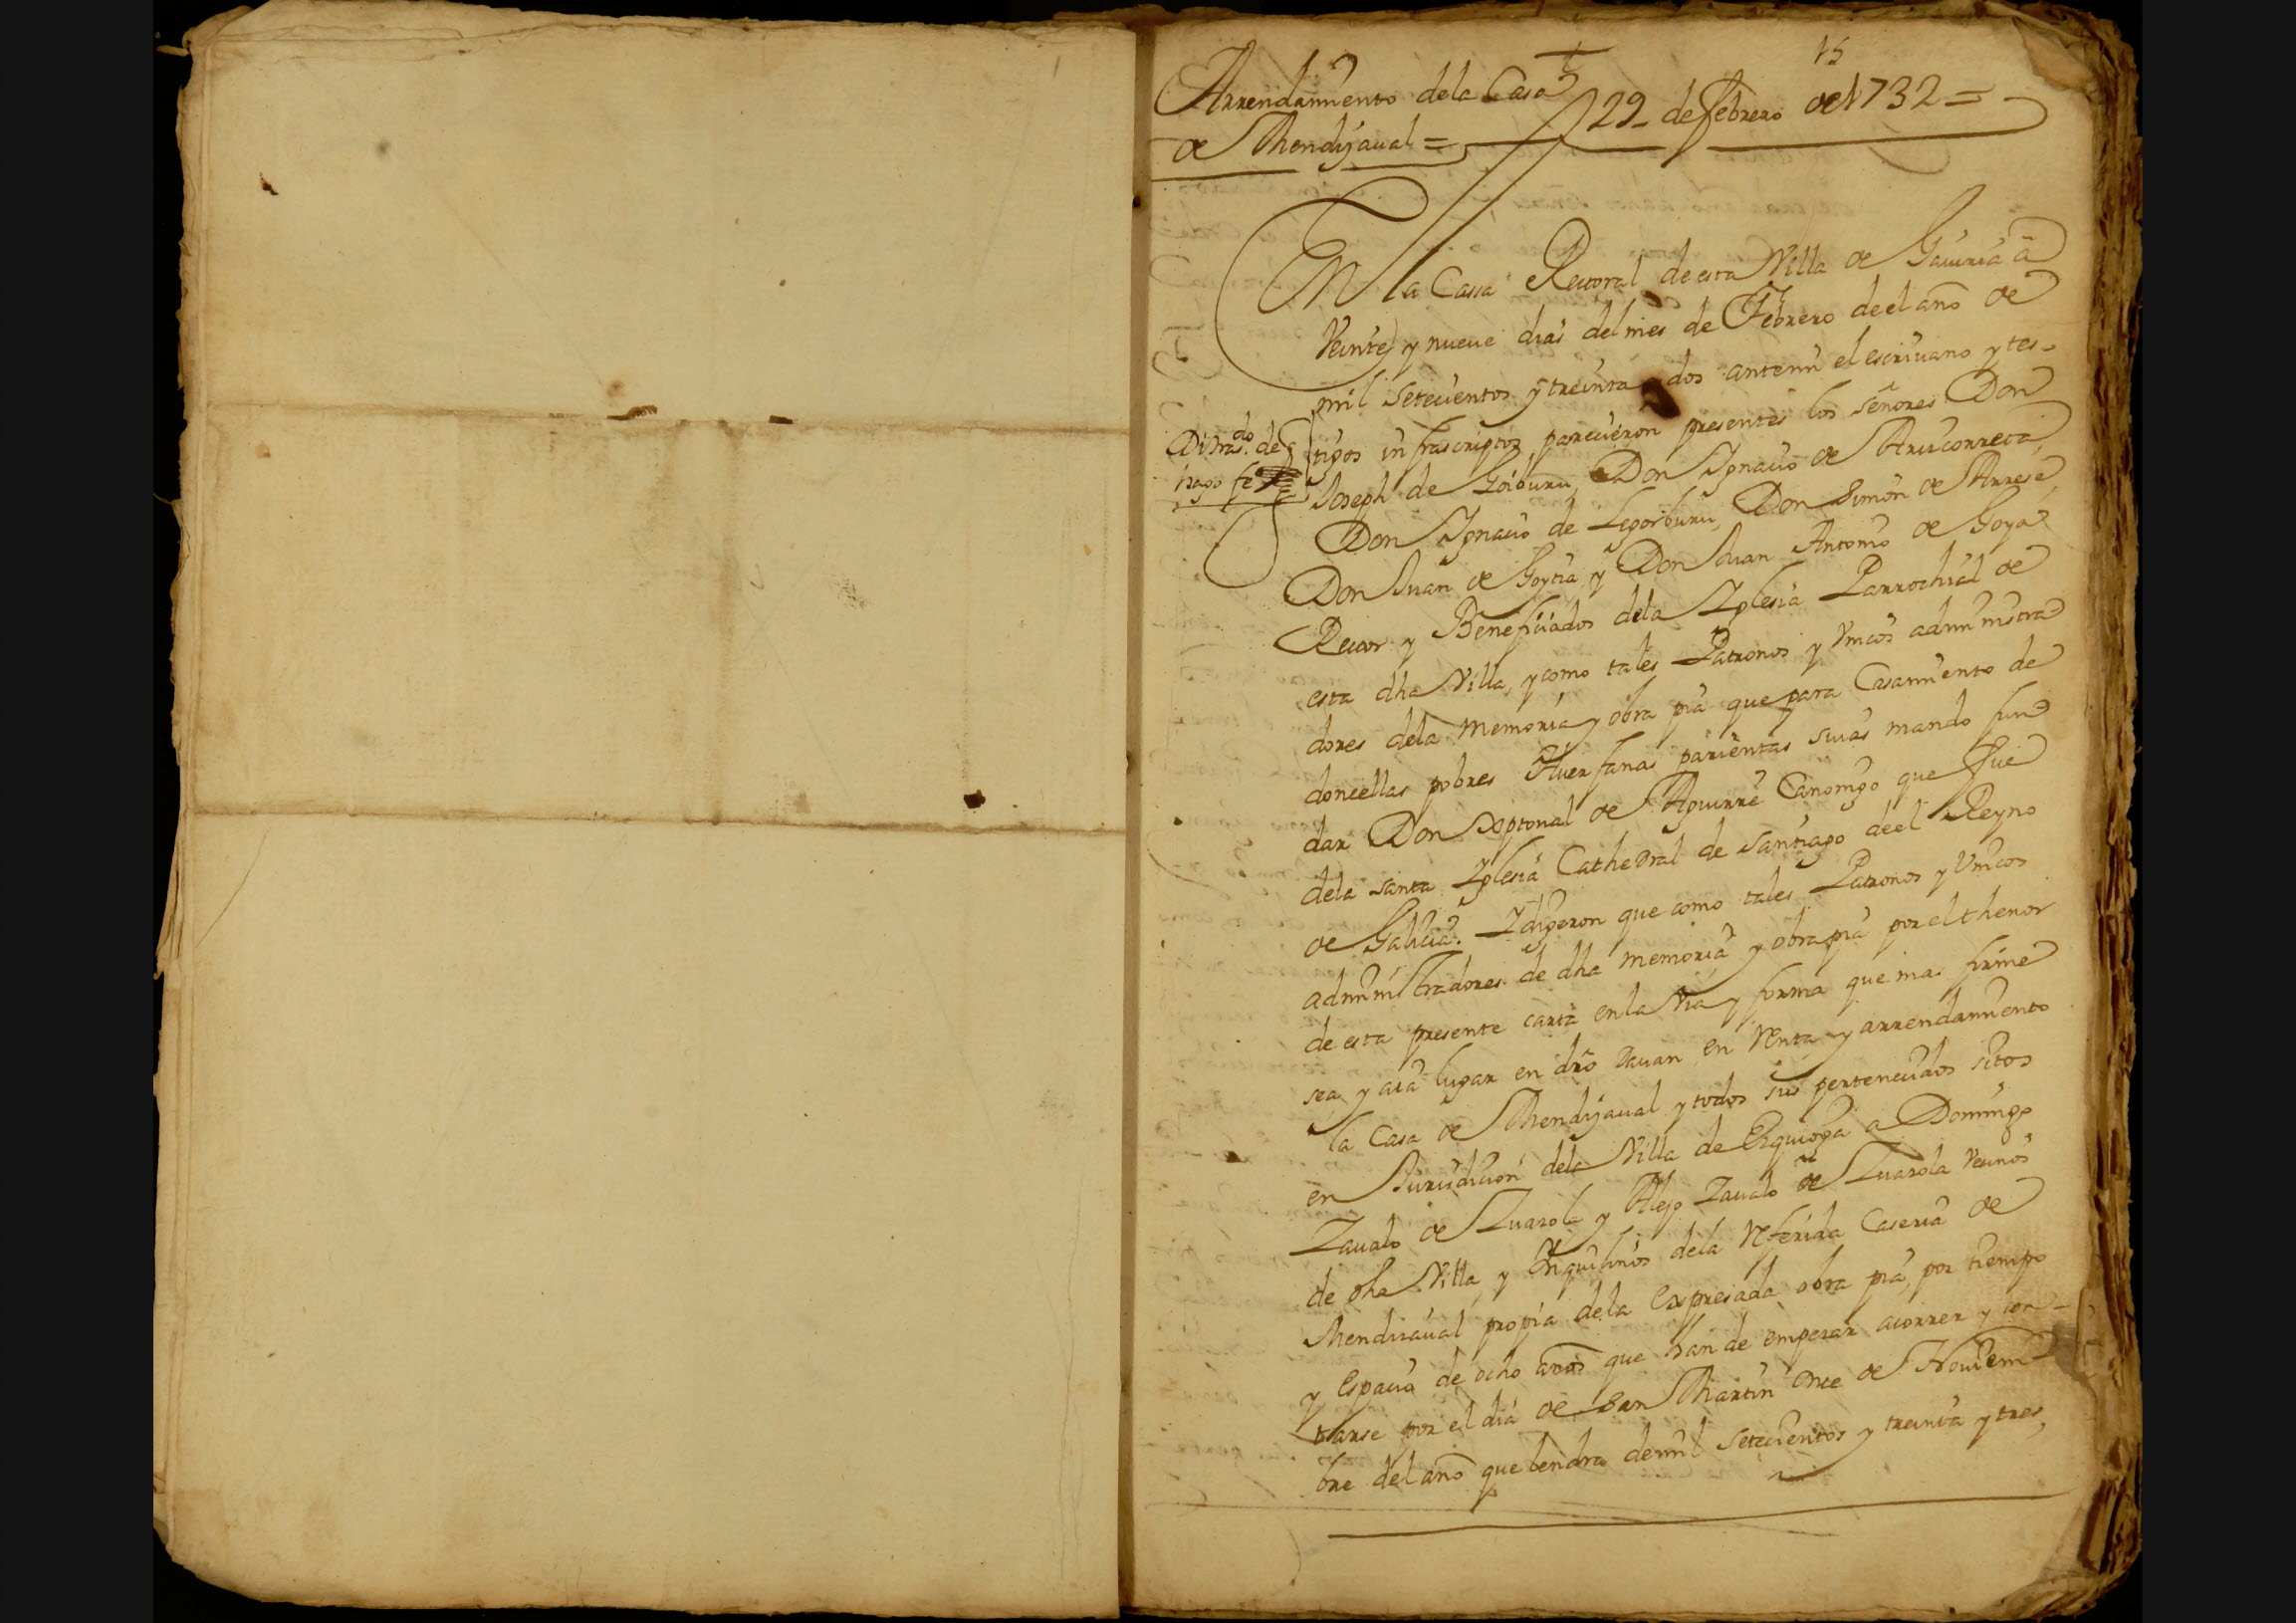 15
Arrendamiento dela Casa
de Mendijaual = 29 de febrero de 1732 =
En la Cassa Rectoral de esta Villa de Gauiria a
Veinte y nueue dias del mes de Febrero de el año de
mil setecientos y treinta y dos ante mi el escriuano y tes-
tigos infrascriptos parecieron presentes los señores Don
Di tras.do de
hago fe
Joseph de Goiburu, Don Ignacio de Aruicorreta
Don Ignacio de Legorburu, Don Simon de Arrese,
Don Juan de Goytia, y Don Juan Antonio de Goya
Rector y Beneficiados dela Iglesia Parrochial de
esta dha Villa, y como tales Patronos y Vnicos administra
dores dela Memoria y obra pia que para Casamiento de
doncellas pobres Huerfanas parientas suias mando fun
dar Don Xptoual de Aguirre Canonigo que fue
dela santa Iglesia Cathedral de Santiago de el Reyno
de Galicia. I digeron que como tales Patronos y Vnicos
administradores de dha memoria y obra pia por el thenor
de esta presente carta en la Via y forma que mas firme
sea y aia lugar en dro dauan en Renta y arrendamiento
la Casa de Mendijaual y todos sus pertenecidos sitos
en Jurisdicion dela Villa de Ezquioga a Domingo
Zaualo de Zuazola y Alejo Zaualo de Zuazola Vecinos
de dha Villa y Ynquilinos dela Referida Caseria de
Mendizaual propia dela Expresada obra pia, por tiempo
y Espacio de ocho años que han de empezar acorrer y con-
tarse por el dia de San Martin Once de Nouiem
bre del año que bendra de mil setecientos y treinta y tres,